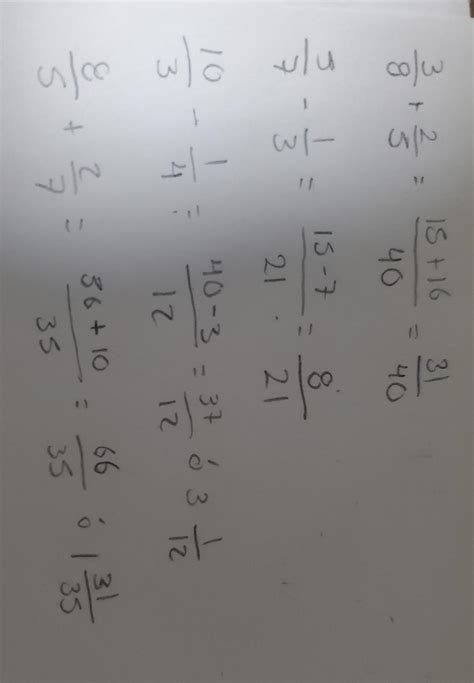 3/8 + 2/5 = 15+16/40 = 31/40
5/7 - 1/3 = 15-7/21 = 8/21
10/3 - 1/4 = 40-3/12 = 37/12 ó 3 1/12
8/5 + 2/7 = 56+10/35 = 66/35 ó 1 31/35